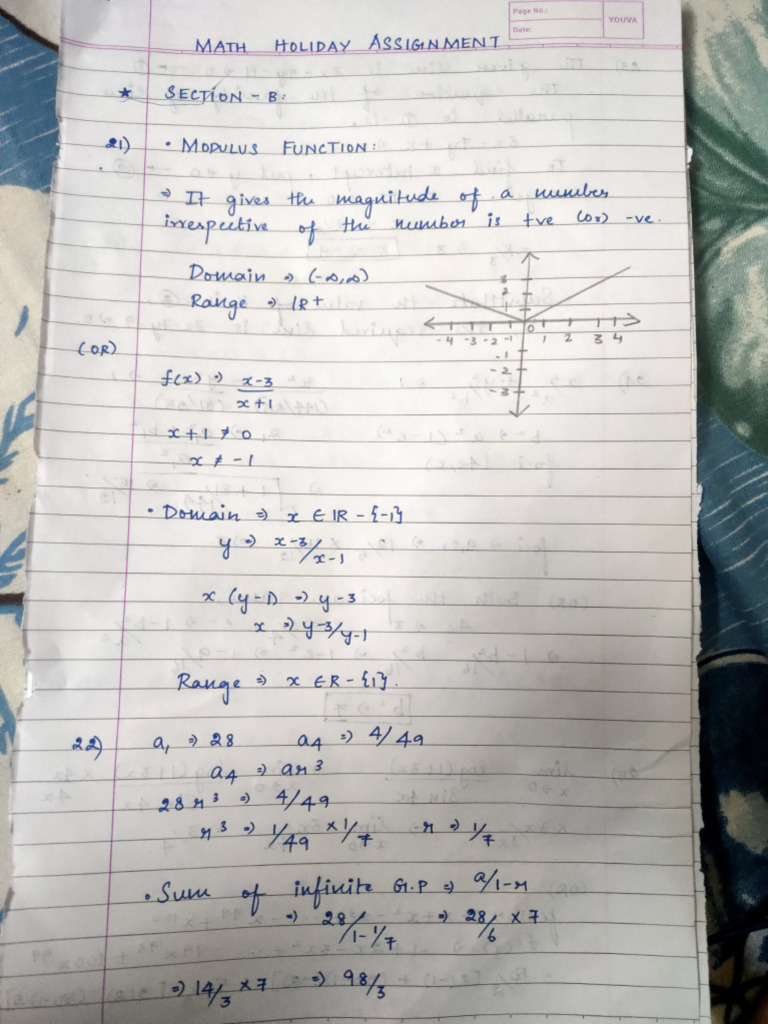 Page No.:
YOUVA
Date:
MATH HOLIDAY ASSIGNMENT
★ SECTION - B:
21) • MODULUS FUNCTION:
⇒ It gives the magnitude of a number
irrespective of the number is +ve (or) -ve.
Domain ⇒ (-∞,∞)
Range ⇒ IR+
3
2
1
-4 -3 -2 -1 0 1 2 3 4
-1
-2
-3
(OR)
f(x) ⇒ x-3
x+1
x+1 ≠ 0
x ≠ -1
• Domain ⇒ x ∈ IR - {-1}
y ⇒ x-3/x-1
x (y-1) ⇒ y-3
x ⇒ y-3/y-1
Range ⇒ x ∈ R - {1}.
22) a₁ ⇒ 28 a₄ ⇒ 4/49
a₄ ⇒ ar³
28r³ ⇒ 4/49
r³ ⇒ 1/49 × 1/7 r ⇒ 1/7
• Sum of infinite G.P ⇒ a/1-r
⇒ 28/1-1/7 ⇒ 28/6 × 7
⇒ 14/3 × 7 ⇒ 98/3